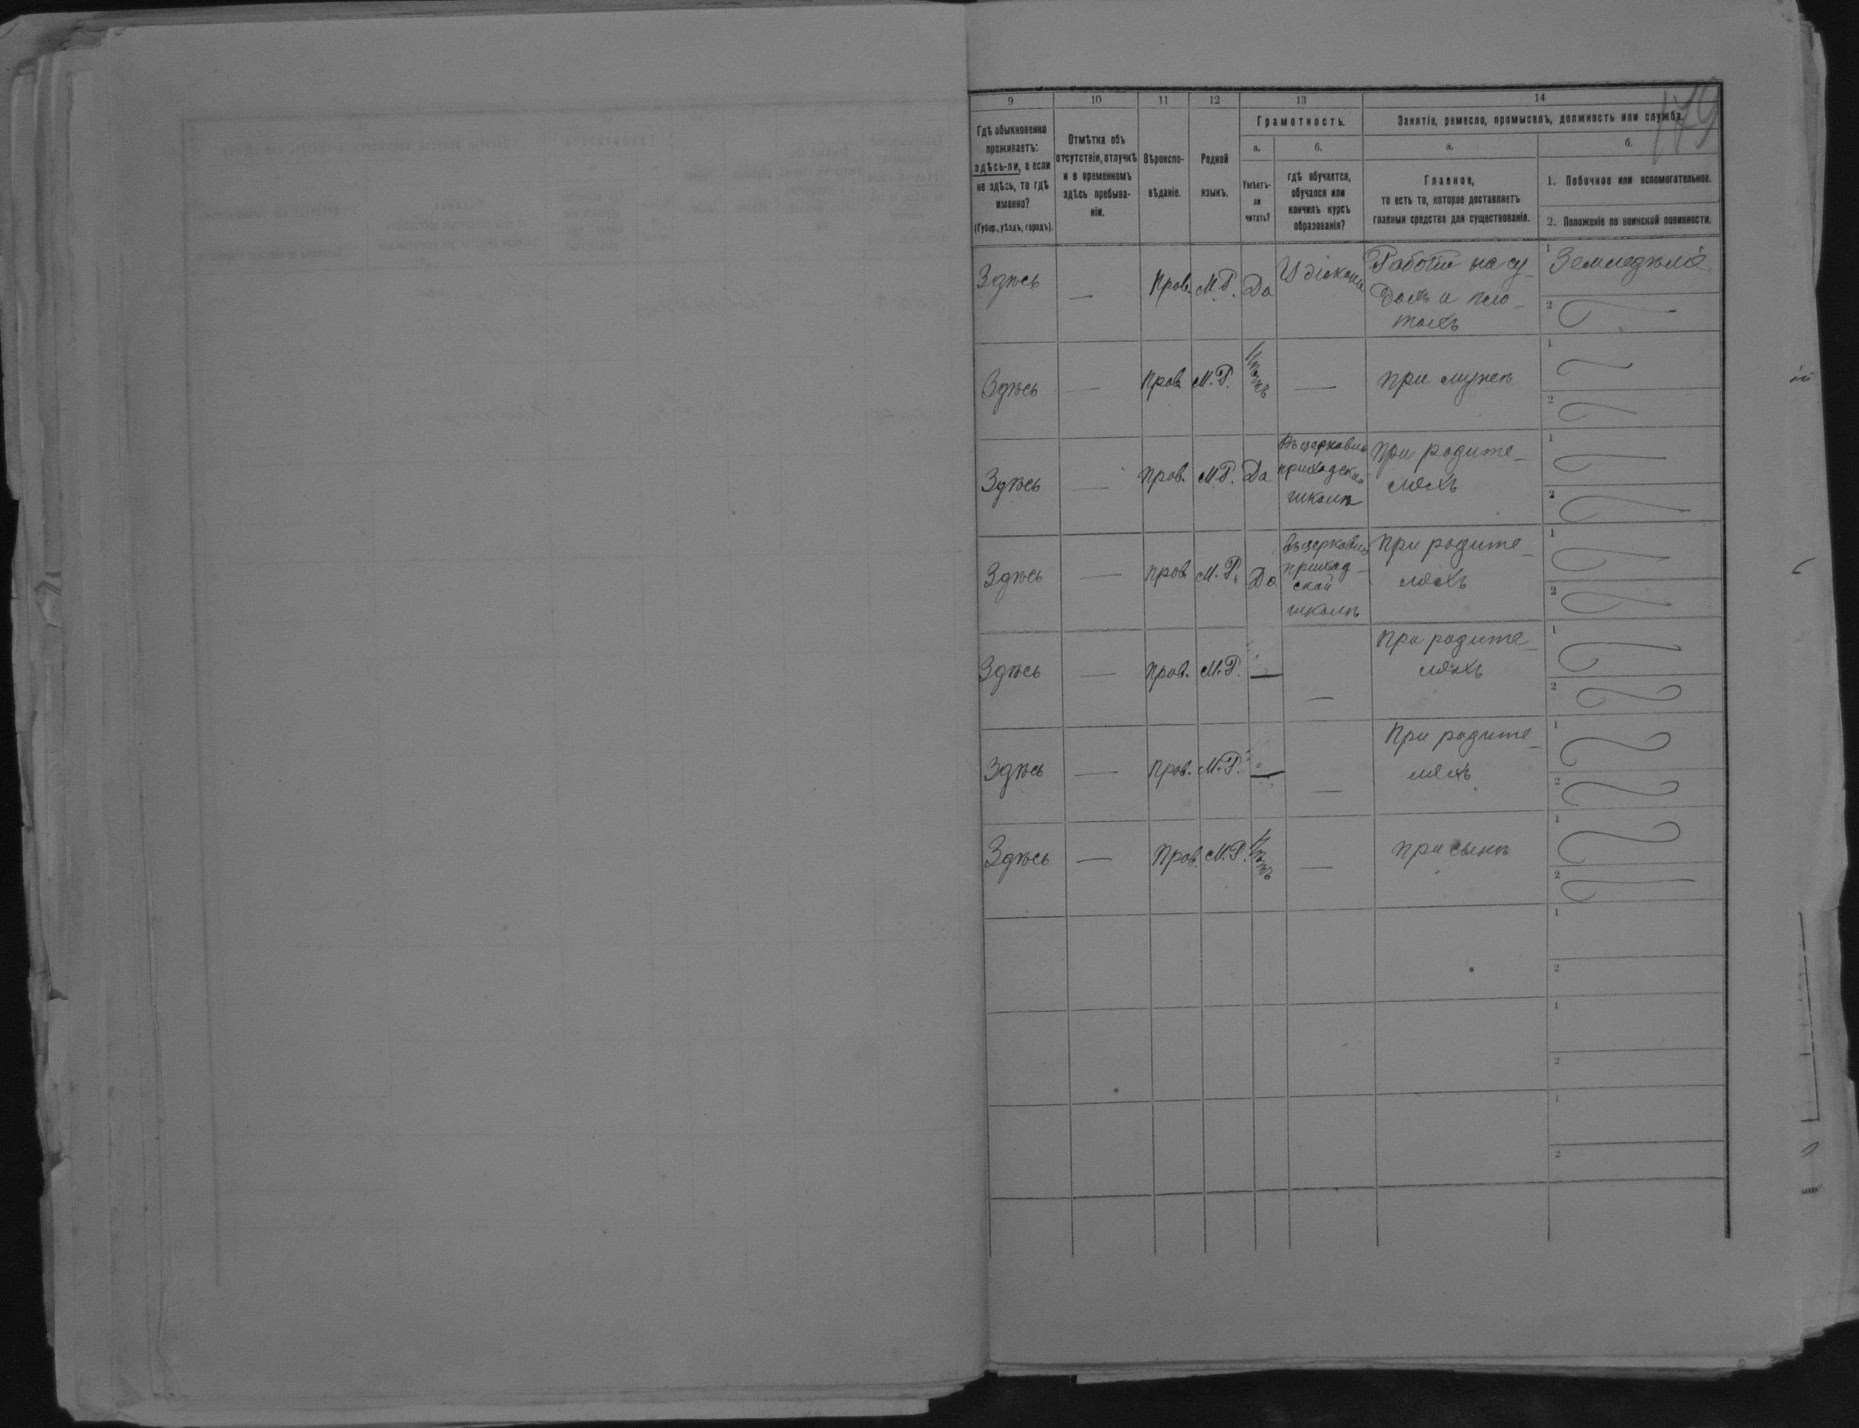 179
9 10 11 12 13 14
Гдѣ обыкновенно
проживаетъ:
здѣсь-ли, а если
не здѣсь, то гдѣ
именно?
(Губер., уѣздъ, городъ).
Отмѣтка объ
отсутствіи, отлучкѣ
и о временномъ
здѣсь пребыва-
ніи.
Вѣроиспо-
вѣданіе.
Родной
языкъ.
Грамотность.
а.
Умѣетъ-
ли
читать?
б.
гдѣ обучается,
обучался или
кончилъ курсъ
образованія?
Занятіе, ремесло, промыселъ, должность или служба.
а.
Главное,
то есть то, которое доставляетъ
главныя средства для существованія.
б.
1. Побочное или вспомогательное.
2. Положеніе по воинской повинности.
Здѣсь — Прав. М.Р. Да У дьякона
на су-
дахъ и пло-
тахъ
1 Земледѣліе
2
Здѣсь — Прав. М.Р. Нѣтъ — При мужѣ
1
2
Здѣсь — Прав. М.Р. Да
Въ церковно
приходской
школѣ
При родите-
ляхъ
1
2
Здѣсь — Прав. М.Р. Да
Въ церковно
приход-
ской
школѣ
При родите-
ляхъ
1
2
Здѣсь — Прав. М.Р. — —
При родите-
ляхъ
1
2
Здѣсь — Прав. М.Р. — —
При родите-
ляхъ
1
2
Здѣсь — Прав. М.Р. Нѣтъ — При сынѣ
1
2
1
2
1
2
1
2